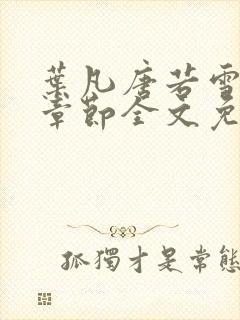 葉凡唐若雪
章節全文免
孤獨才是常態